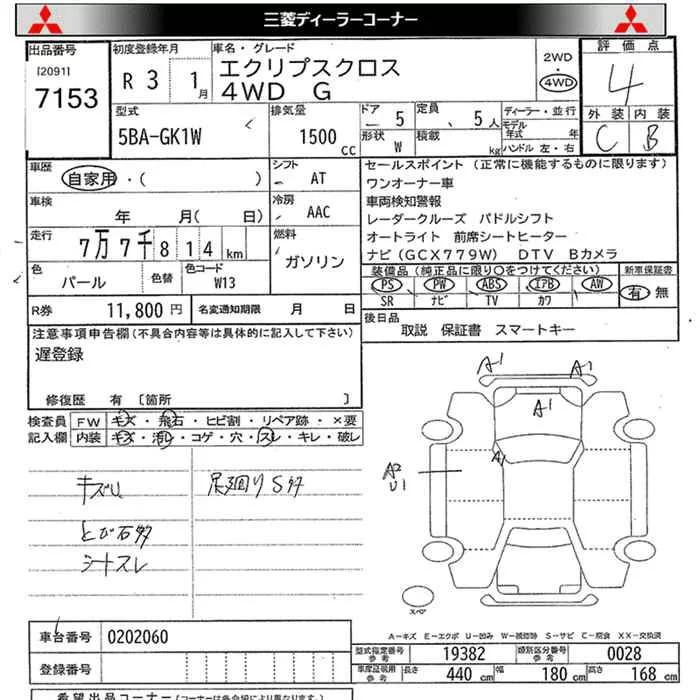 三菱ディーラーコーナー
出品番号
[2091]
7153
初度登録年月
R 3 1月
車名・グレード
エクリプスクロス
4WD G
2WD
・
4WD
評価点
4
外装 内装
C B
型式
5BA-GK1W
排気量
1500 cc
ドア 5
定員 5人
形状 W
積載 kg
ディーラー・並行
モデル年式 年
ハンドル 左・右
車歴
自家用・( )
シフト
AT
車検
年 月( 日)
冷房
AAC
走行
7万7千814km
燃料
ガソリン
色
パール
色替
色コード
W13
R券 11,800円
名変通知期限 月 日
セールスポイント (正常に機能するものに限ります)
ワンオーナー車
車両検知警報
レーダークルーズ パドルシフト
オートライト 前席シートヒーター
ナビ(GCX779W) DTV Bカメラ
装備品(純正品に限り○をつけてください)
新車保証書
PS PW ABS エアB AW
SR ナビ TV カワ
有 無
後日品
取説 保証書 スマートキー
注意事項申告欄(不具合内容等は具体的に記入して下さい)
遅登録
修復歴 有 〔箇所 〕
検査員記入欄
FW キズ・飛石・ヒビ割・リペア跡・×要
内装 キズ・汚レ・コゲ・穴・スレ・キレ・破レ
キズU
とび石多
シートスレ
足廻りS多
A1 A1
A1
A1
A2
U1
スペア
A-キズ E-エクボ U-凹み W-補修跡 S-サビ C-腐食 XX-交換済
車台番号 0202060
登録番号
型式指定番号参考 19382
類別区分番号参考 0028
車庫証明用参考 長さ 440 cm 幅 180 cm 高さ 168 cm
希望出品コーナー